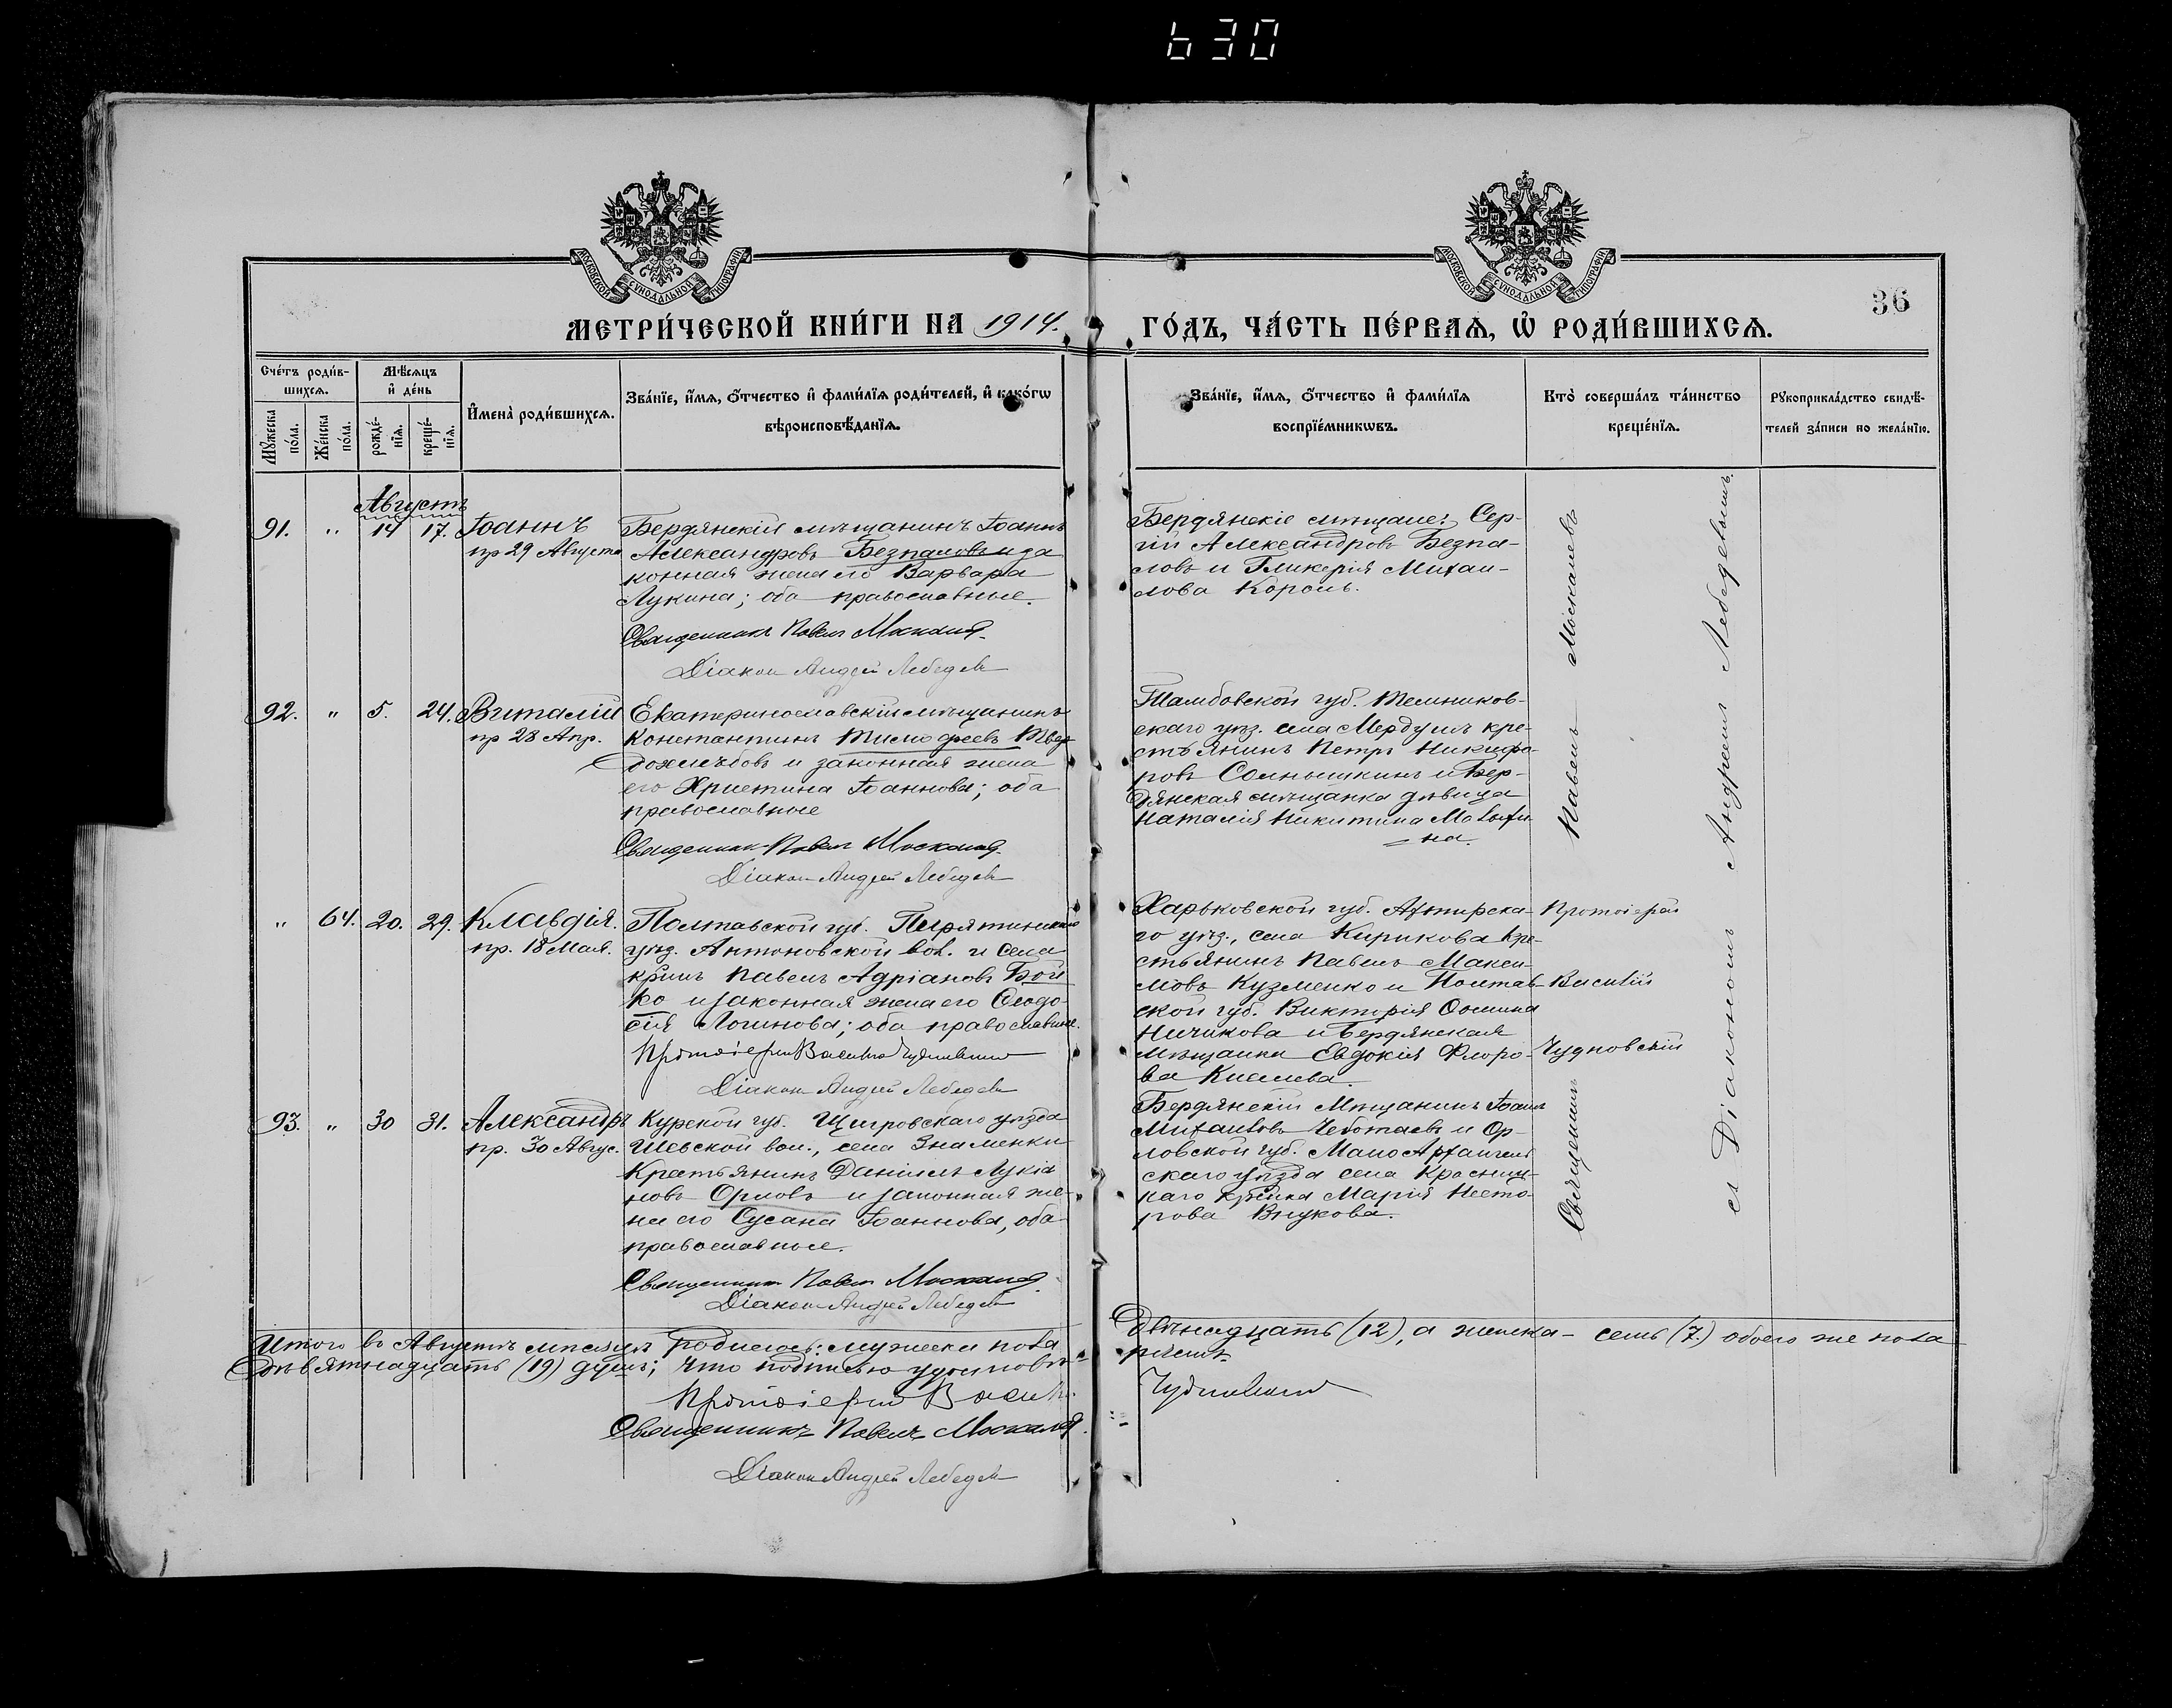 630
МОСКОВСКОЙ СѴНОДАЛЬНОЙ ТИПОГРАФІИ
МОСКОВСКОЙ СѴНОДАЛЬНОЙ ТИПОГРАФІИ
36
МЕТРИ́ЧЕСКОЙ КНИ́ГИ НА 1914. ГО́ДЪ, ЧА́СТЬ ПЕ́РВАѦ, Ѡ҆ РОДИ́ВШИХСѦ.
Сче́тъ роди́в-
шихсѧ.
Мꙋ́жеска по́ла.
Же́нска по́ла.
Мѣ́сѧцъ
и҆ де́нь
рожде́-
нїѧ.
креще́-
нїѧ.
И҆мена̀ роди́вшихсѧ.
Зва́нїе, и҆́мѧ, ѻ҆́тчество и҆ фами́лїѧ роди́телей, и҆ како́гѡ
вѣроисповѣ́данїѧ.
Зва́нїе, и҆́мѧ, ѻ҆́тчество и҆ фами́лїѧ
воспрїе́мникѡвъ.
Кто̀ соверша́лъ та́инство
креще́нїѧ.
Рꙋкоприкла́дство свидѣ́-
телей за́писи по жела́нїю.
Августъ
91. " 14 17. Іоаннъ
пр 29 Августа
Бердянскій мѣщанинъ Іоаннъ
Александровъ Безпаловъ и за
конная жена его Варвара
Лукина; оба православные.
Священникъ Павелъ Москалев
Діакон Андрей Лебедев
Бердянскіе мѣщане: Сер-
гій Александровъ Безпа-
ловъ и Гликерія Михаи-
лова Король.
92. " 5. 24. Виталій
пр 28 Апр.
Екатеринославскій мѣщанинъ
Константинъ Тимофеевъ Твер
дохлѣбовъ и законная жена
его Христина Іоаннова; оба
православные
Священник Павел Москалев
Діакон Андрей Лебедев
Тамбовской губ. Темников-
скаго уѣз. села Мердушъ кре-
стьянинъ Петръ Никифо-
ровъ Солнышкинъ и Бер-
дянская мѣщанка дѣвица
Наталія Никитина
на.
Священникъ Павелъ Москалевъ
съ Діакономъ Андреемъ Лебедевымъ.
" 64. 20. 29. Клавдія.
пр. 18 Мая.
Полтавской губ. Пирятинскаго
уѣз. Антоновской вол. и села
кр-нинъ Павелъ Адріановъ Бой
ко и законная жена его Ѳеодо-
сія Логинова; оба православные.
Протоіерей Василій Чудновскій
Діакон Андрей Лебедев
Харьковской губ. Ахтырска-
го уѣз., села Кирикова кре-
стьянинъ Павелъ Макси-
мовъ Кузменко и Полтав-
ской губ. Викторія
Ничикова и Бердянская
мѣщанка Евдокія Флоро-
ва Киселева.
Протоіерей
Василій
Чудновскій
93. " 30 31. Александръ
пр. 30 Авгус.
Курской губ. Щигровскаго уѣзда
вол., села Знаменки
Крестьянинъ Даніилъ Лукіа
новъ Орловъ и законная же-
на его Сусана Іоаннова, оба
православные.
Священник Павел Москалев
Діакон Андрей Лебедев
Бердянскій Мѣщанинъ Іоаннъ
Михаиловъ Чеботаевъ и Ор-
ловской губ. Мало Архангель
скаго уѣзда села
каго Марія Несто-
рова Внукова.
Итого въ Августѣ мѣсяцѣ родилось: мужеска пола двѣнадцать (12), а женска - семь (7.) обоего же пола
девятнадцать (19) душъ; что подписью удостовѣ-ряемъ.
Протоіерей Василій Чудновскій
Священникъ Павелъ Москалев.
Діакон Андрей Лебедев